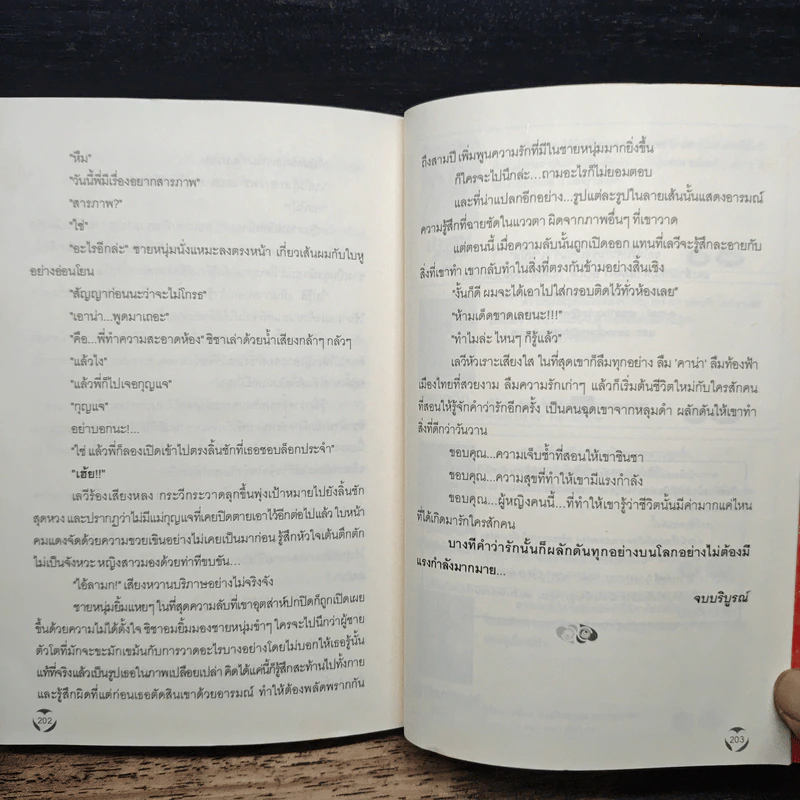 "หืม"
"วันนี้พี่มีเรื่องอยากสารภาพ"
"สารภาพ?"
"ใช่"
"อะไรอีกล่ะ" ชายหนุ่มนั่งแหมะลงตรงหน้า เกี่ยวเส้นผมกับใบหู
อย่างอ่อนโยน
"สัญญาก่อนนะว่าจะไม่โกรธ"
"เอาน่า...พูดมาเถอะ"
"คือ...พี่ทำความสะอาดห้อง" ชิชาเล่าด้วยน้ำเสียงกล้าๆ กลัวๆ
"แล้วไง"
"แล้วพี่ก็ไปเจอกุญแจ"
"กุญแจ"
อย่าบอกนะ!...
"ใช่ แล้วพี่ก็ลองเปิดเข้าไปตรงลิ้นชักที่เธอชอบล็อกประจำ"
"เฮ้ย!!"
เลวีร้องเสียงหลง กระวีกระวาดลุกขึ้นพุ่งเป้าหมายไปยังลิ้นชัก
สุดหวง และปรากฏว่าไม่มีแม่กุญแจที่เคยปิดตายเอาไว้อีกต่อไปแล้ว ใบหน้า
คมแดงจัดด้วยความขวยเขินอย่างไม่เคยเป็นมาก่อน รู้สึกหัวใจเต้นตึกตัก
ไม่เป็นจังหวะ หญิงสาวมองด้วยท่าทีขบขัน...
"ไอ้ลามก!" เสียงหวานบริภาษอย่างไม่จริงจัง
ชายหนุ่มยิ้มแหยๆ ในที่สุดความลับที่เขาอุตส่าห์ปกปิดก็ถูกเปิดเผย
ขึ้นด้วยความไม่ได้ตั้งใจ ชิชาอมยิ้มมองชายหนุ่มขำๆ ใครจะไปนึกว่าผู้ชาย
ตัวโตที่มักจะขะมักเขม้นกับการวาดอะไรบางอย่างโดยไม่บอกให้เธอรู้นั้น
แท้ที่จริงแล้วเป็นรูปเธอในภาพเปลือยเปล่า คิดได้แค่นี้ก็รู้สึกสะท้านไปทั้งกาย
และรู้สึกผิดที่แต่ก่อนเธอตัดสินเขาด้วยอารมณ์ ทำให้ต้องพลัดพรากกัน
202
ถึงสามปี เพิ่มพูนความรักที่มีในชายหนุ่มมากยิ่งขึ้น
ก็ใครจะไปนึกล่ะ...ถามอะไรก็ไม่ยอมตอบ
และที่น่าแปลกอีกอย่าง...รูปแต่ละรูปในลายเส้นนั้นแสดงอารมณ์
ความรู้สึกที่ฉายชัดในแววตา ผิดจากภาพอื่นๆ ที่เขาวาด
แต่ตอนนี้ เมื่อความลับนั้นถูกเปิดออก แทนที่เลวีจะรู้สึกละอายกับ
สิ่งที่เขาทำ เขากลับทำในสิ่งที่ตรงกันข้ามอย่างสิ้นเชิง
"งั้นก็ดี ผมจะได้เอาไปใส่กรอบติดไว้ทั่วห้องเลย"
"ห้ามเด็ดขาดเลยนะ!!!"
"ทำไมล่ะ ไหนๆ ก็รู้แล้ว"
เลวีหัวเราะเสียงใส ในที่สุดเขาก็ลืมทุกอย่าง ลืม 'คาน่า' ลืมท้องฟ้า
เมืองไทยที่สวยงาม ลืมความรักเก่าๆ แล้วก็เริ่มต้นชีวิตใหม่กับใครสักคน
ที่สอนให้รู้จักคำว่ารักอีกครั้ง เป็นคนฉุดเขาจากหลุมดำ ผลักดันให้เขาทำ
สิ่งที่ดีกว่าวันวาน
ขอบคุณ...ความเจ็บช้ำที่สอนให้เขาชินชา
ขอบคุณ...ความสุขที่ทำให้เขามีแรงกำลัง
ขอบคุณ...ผู้หญิงคนนี้...ที่ทำให้เขารู้ว่าชีวิตนั้นมีค่ามากแค่ไหน
ที่ได้เกิดมารักใครสักคน
บางทีคำว่ารักนั้นก็ผลักดันทุกอย่างบนโลกอย่างไม่ต้องมี
แรงกำลังมากมาย...
จบบริบูรณ์
203